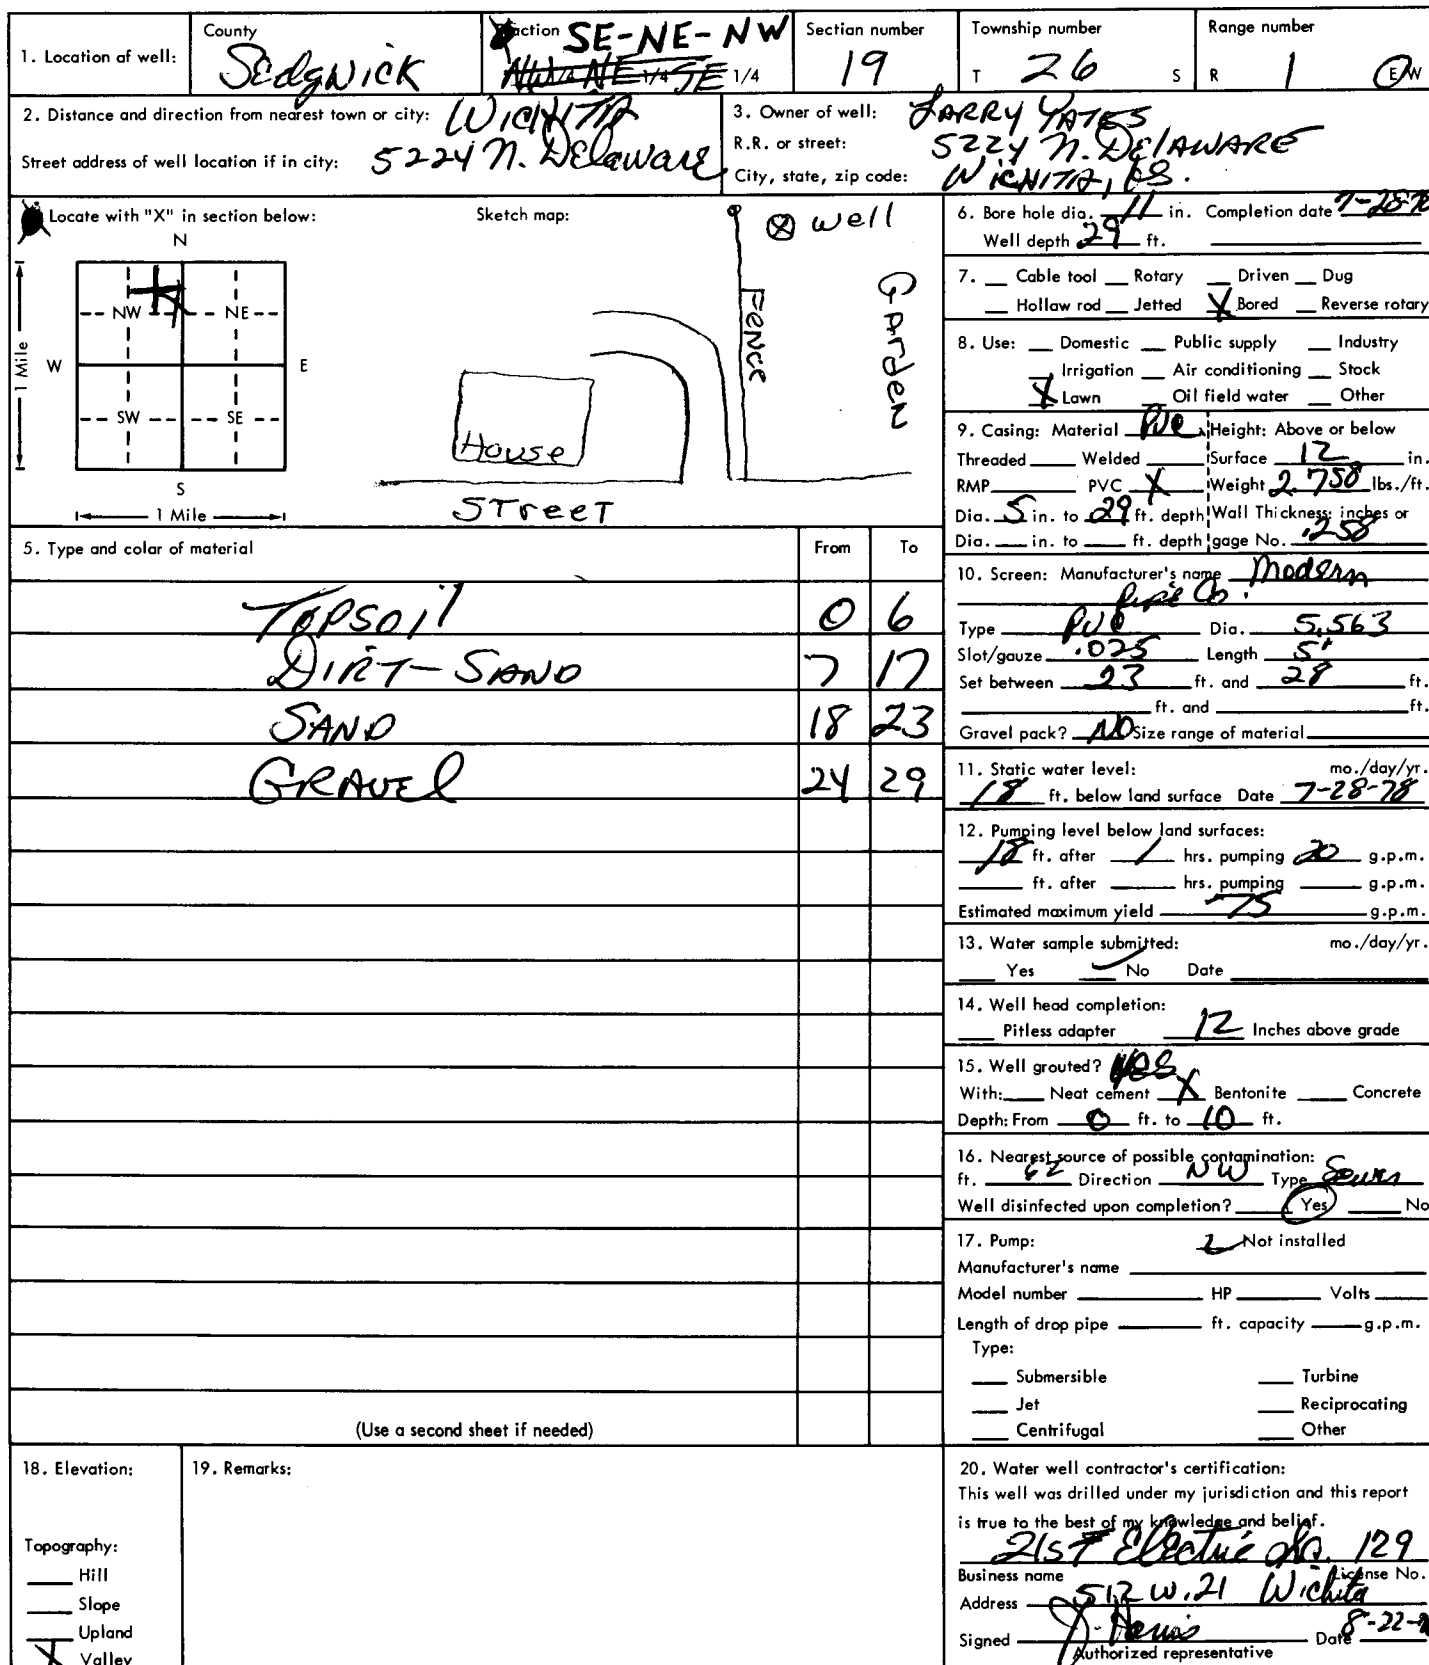 1. Location of well:
County
Sedgwick
Fraction SE-NE-NW
NW 1/4 NE 1/4 SE 1/4
Section number
19
Township number
T 26 S
Range number
R 1 E W
2. Distance and direction from nearest town or city: WICHITA
Street address of well location if in city: 5224 N. Delaware
3. Owner of well: LARRY YATES
R.R. or street: 5224 N. DELAWARE
City, state, zip code: WICHITA, KS.
Locate with "X" in section below:
N
NW NE
W E
SW SE
S
1 Mile
1 Mile
Sketch map:
well
FENCE
Garden
House
STreeT
5. Type and color of material From To
TOPSOil 0 6
DIRT-SAND 7 17
SAND 18 23
GRAVEl 24 29
(Use a second sheet if needed)
6. Bore hole dia. 11 in. Completion date 7-28-78
Well depth 29 ft.
7. Cable tool Rotary Driven Dug
Hollow rod Jetted X Bored Reverse rotary
8. Use: Domestic Public supply Industry
Irrigation Air conditioning Stock
X Lawn Oil field water Other
9. Casing: Material PVC Height: Above or below
Threaded Welded Surface 12 in.
RMP PVC X Weight 2.758 lbs./ft.
Dia. 5 in. to 29 ft. depth Wall Thickness: inches or
Dia. in. to ft. depth gage No. .258
10. Screen: Manufacturer's name Modern
Pipe Co.
Type PVC Dia. 5.563
Slot/gauze .025 Length 5'
Set between 23 ft. and 28 ft.
ft. and ft.
Gravel pack? NO Size range of material
11. Static water level: mo./day/yr.
18 ft. below land surface Date 7-28-78
12. Pumping level below land surfaces:
18 ft. after 1 hrs. pumping 20 g.p.m.
ft. after hrs. pumping g.p.m.
Estimated maximum yield 75 g.p.m.
13. Water sample submitted: mo./day/yr.
Yes ✓ No Date
14. Well head completion:
Pitless adapter 12 Inches above grade
15. Well grouted? YES
With: Neat cement X Bentonite Concrete
Depth: From 0 ft. to 10 ft.
16. Nearest source of possible contamination:
ft. 62 Direction NW Type Sewer
Well disinfected upon completion? Yes No
17. Pump: Not installed
Manufacturer's name
Model number HP Volts
Length of drop pipe ft. capacity g.p.m.
Type:
Submersible Turbine
Jet Reciprocating
Centrifugal Other
18. Elevation:
Topography:
Hill
Slope
Upland
X Valley
19. Remarks:
20. Water well contractor's certification:
This well was drilled under my jurisdiction and this report
is true to the best of my knowledge and belief.
21ST Electric 129
Business name License No.
Address 512 W. 21 Wichita
Signed J. Harris Date 8-22-
Authorized representative